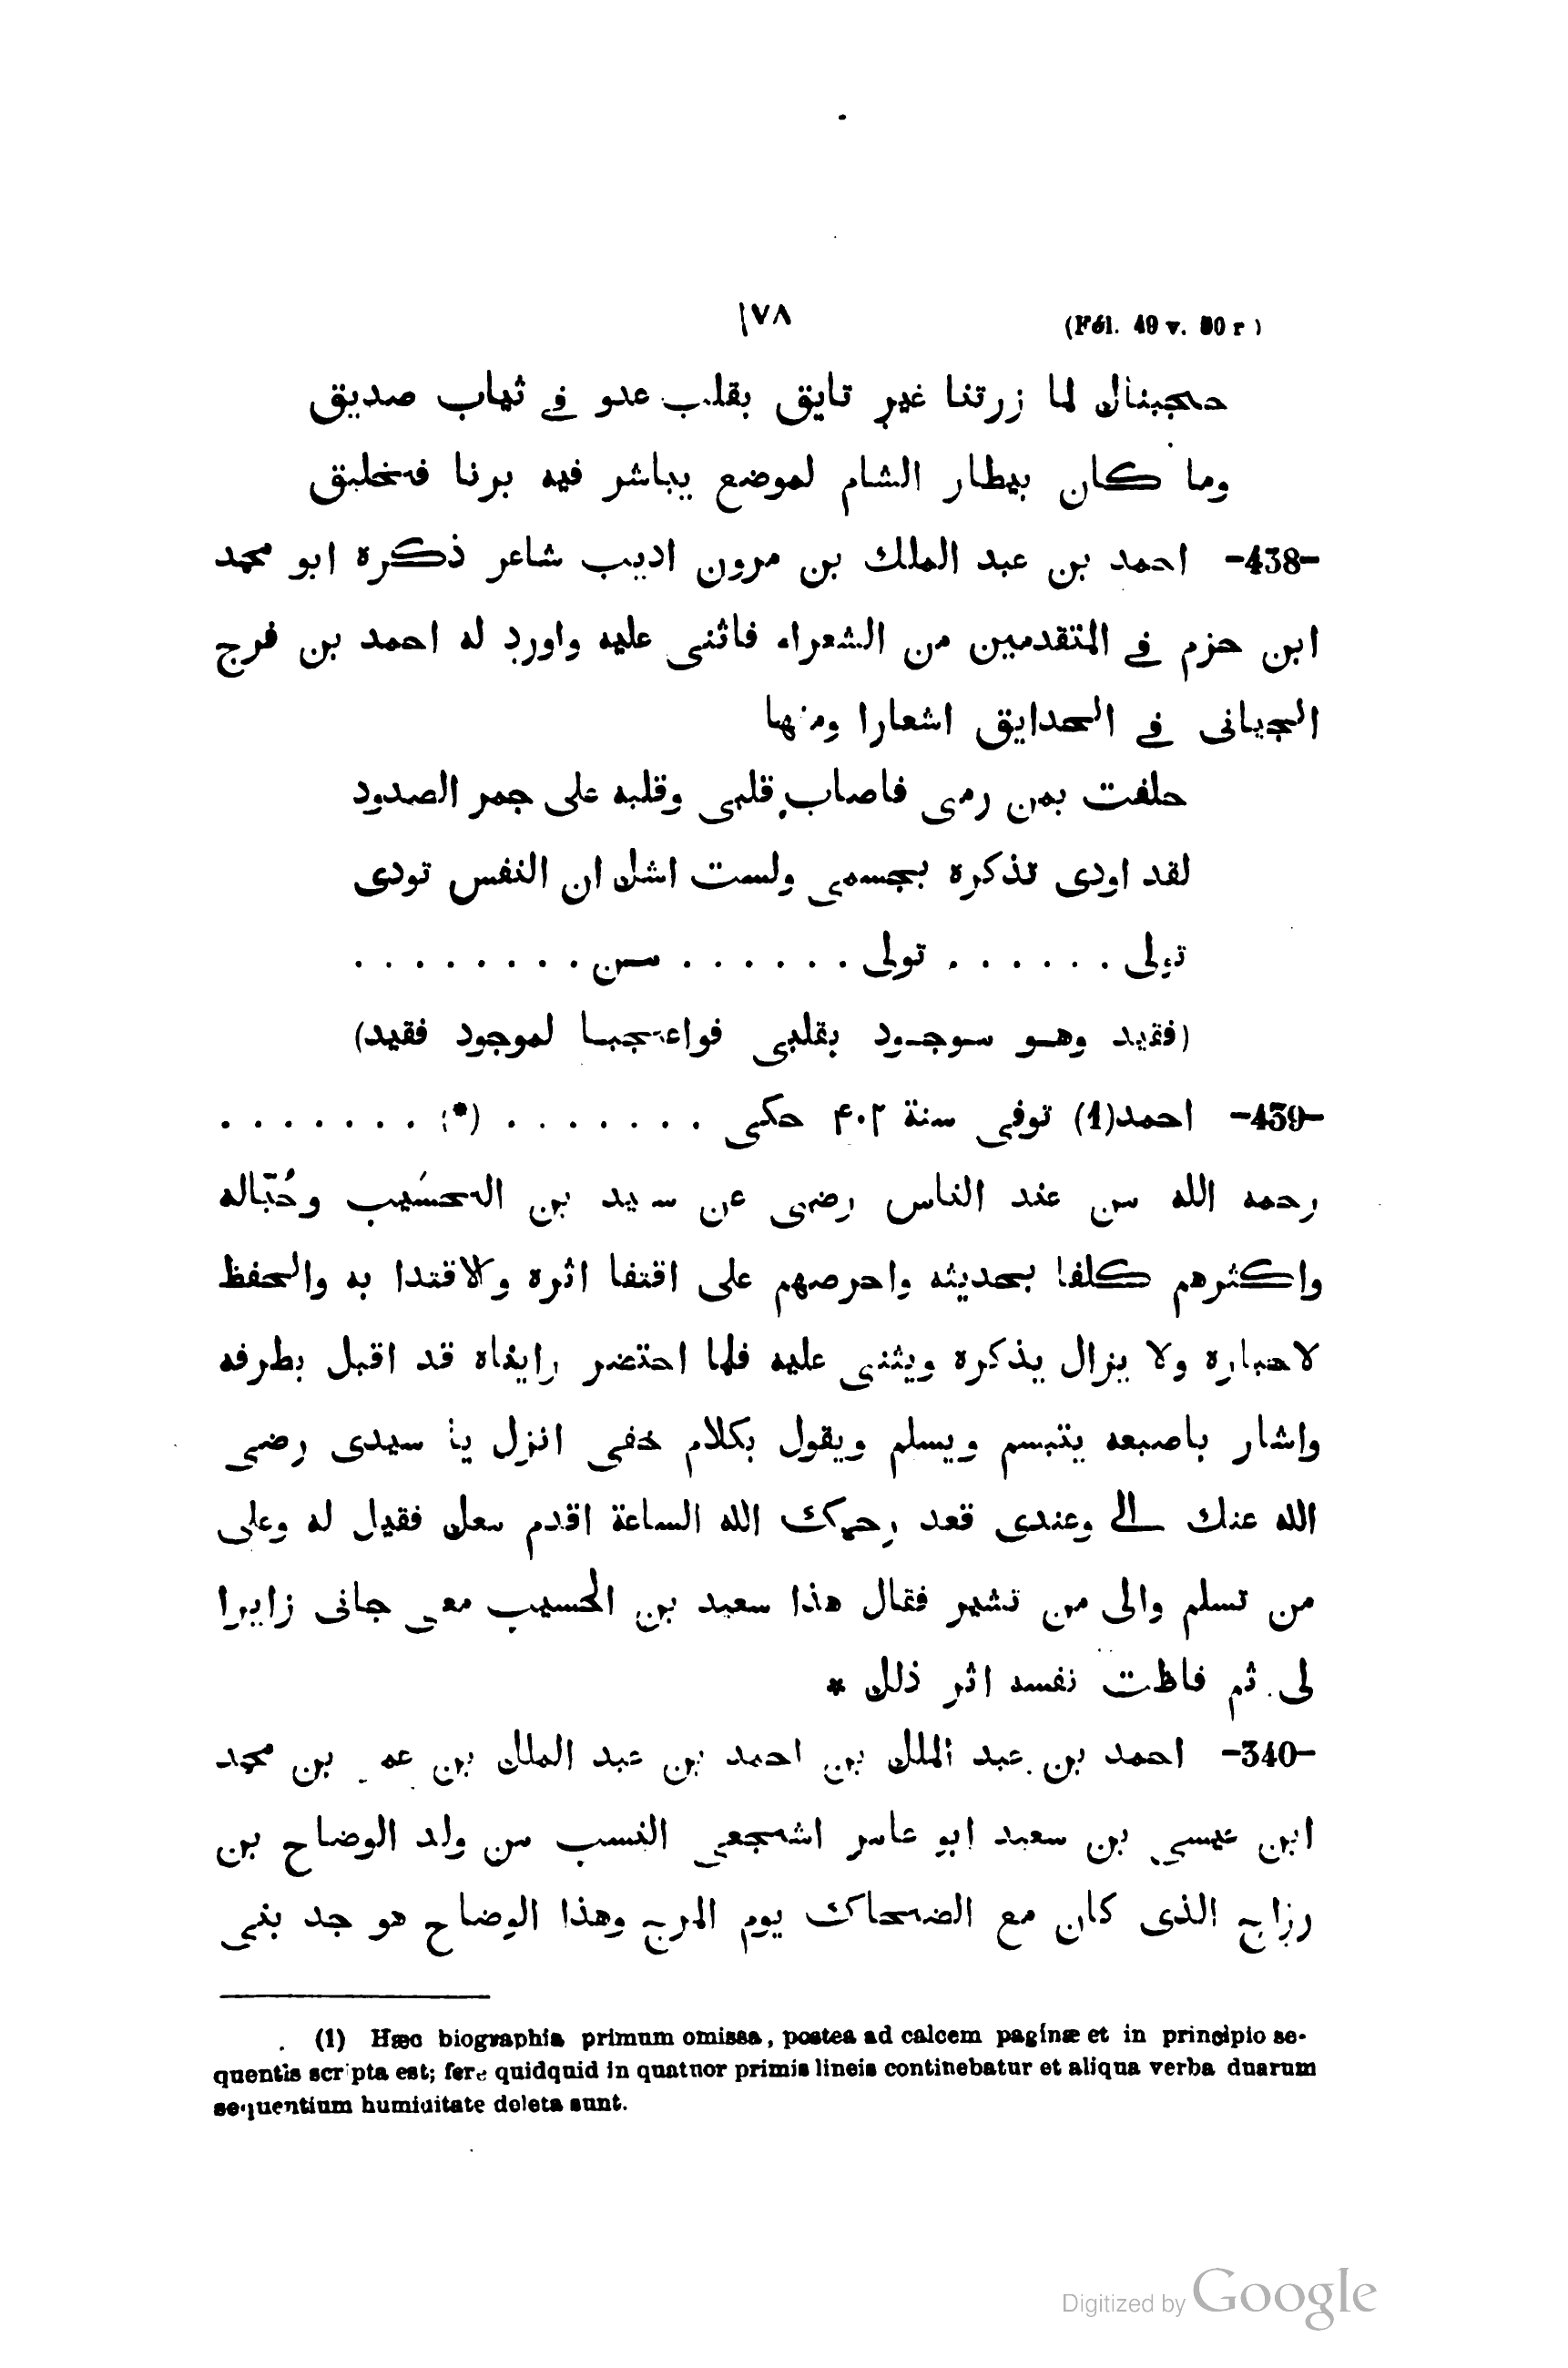 ١٧٨ (Fól. 49 v. 50 r)
حجبناك لما زرتنا غير تايق بقلب عدو في ثياب صديق
وما كان بيطار الشام لموضع يباشر فيه برنا فخليق
-438- احمد بن عبد الملك بن مرون اديب شاعر ذكره ابو محمد
ابن حزم في المتقدمين من الشعراء فاثنى عليه واورد له احمد بن فرج
الجيانى في الحدايق اشعارا ومنها
حلفت بمن رمى فاصاب قلبى وقلبه على جمر الصدود
لقد اودى تذكره بجسمى ولست اشك ان النفس تودى
تولى . . . . . . . . . . . . . . . . . . . . .
(فقيد وهو موجود بقلبى فواعجبا لموجود فقيد)
-439- احمد(1) توفى سنة ۴۰۲ حكى . . . . . . . (*) . . . . . . .
رحمه الله من عند الناس رضى عن سعيد بن الحسَيب وحُبّاله
واكثرهم كلفا بحديثه واحرصهم على اقتفا اثره والاقتدا به والحفظ
لاخباره ولا يزال يذكره ويثنى عليه فلما احتضر رايناه قد اقبل بطرفه
واشار باصبعه يتبسم ويسلم ويقول بكلام خفى انزل يا سيدى رضى
الله عنك الى وعندى قعد رحمك الله الساعة اقدم معك فقيل له وعلى
من تسلم والى من تشير فقال هذا سعيد بن الحسيب معى جانى زايرا
لى ثم فاظت نفسه اثر ذلك *
-340- احمد بن عبد الملك بن احمد بن عبد الملك بن بن محمد
ابن عيسى بن سعيد ابو عامر اشجعى النسب من ولد الوضاح بن
رزاح الذى كان مع الضحاك يوم المرج وهذا الوضاح هو جد بنى
(1) Hæc biographia primum omissa, postea ad calcem paginæ et in principio se-
quentis scripta est; fere quidquid in quatuor primis lineis continebatur et aliqua verba duarum
sequentium humiditate deleta sunt.
Digitized by Google